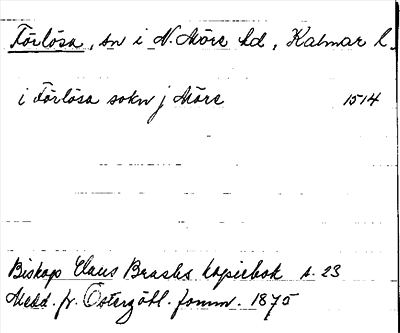 Förlösa, sn i N. Möre hd, Kalmar l.
i Förlösa sokn j Möre 1514
Biskop Claus Brasks kopiebok s. 23
Medd. fr. Östergötl. fornm. 1875